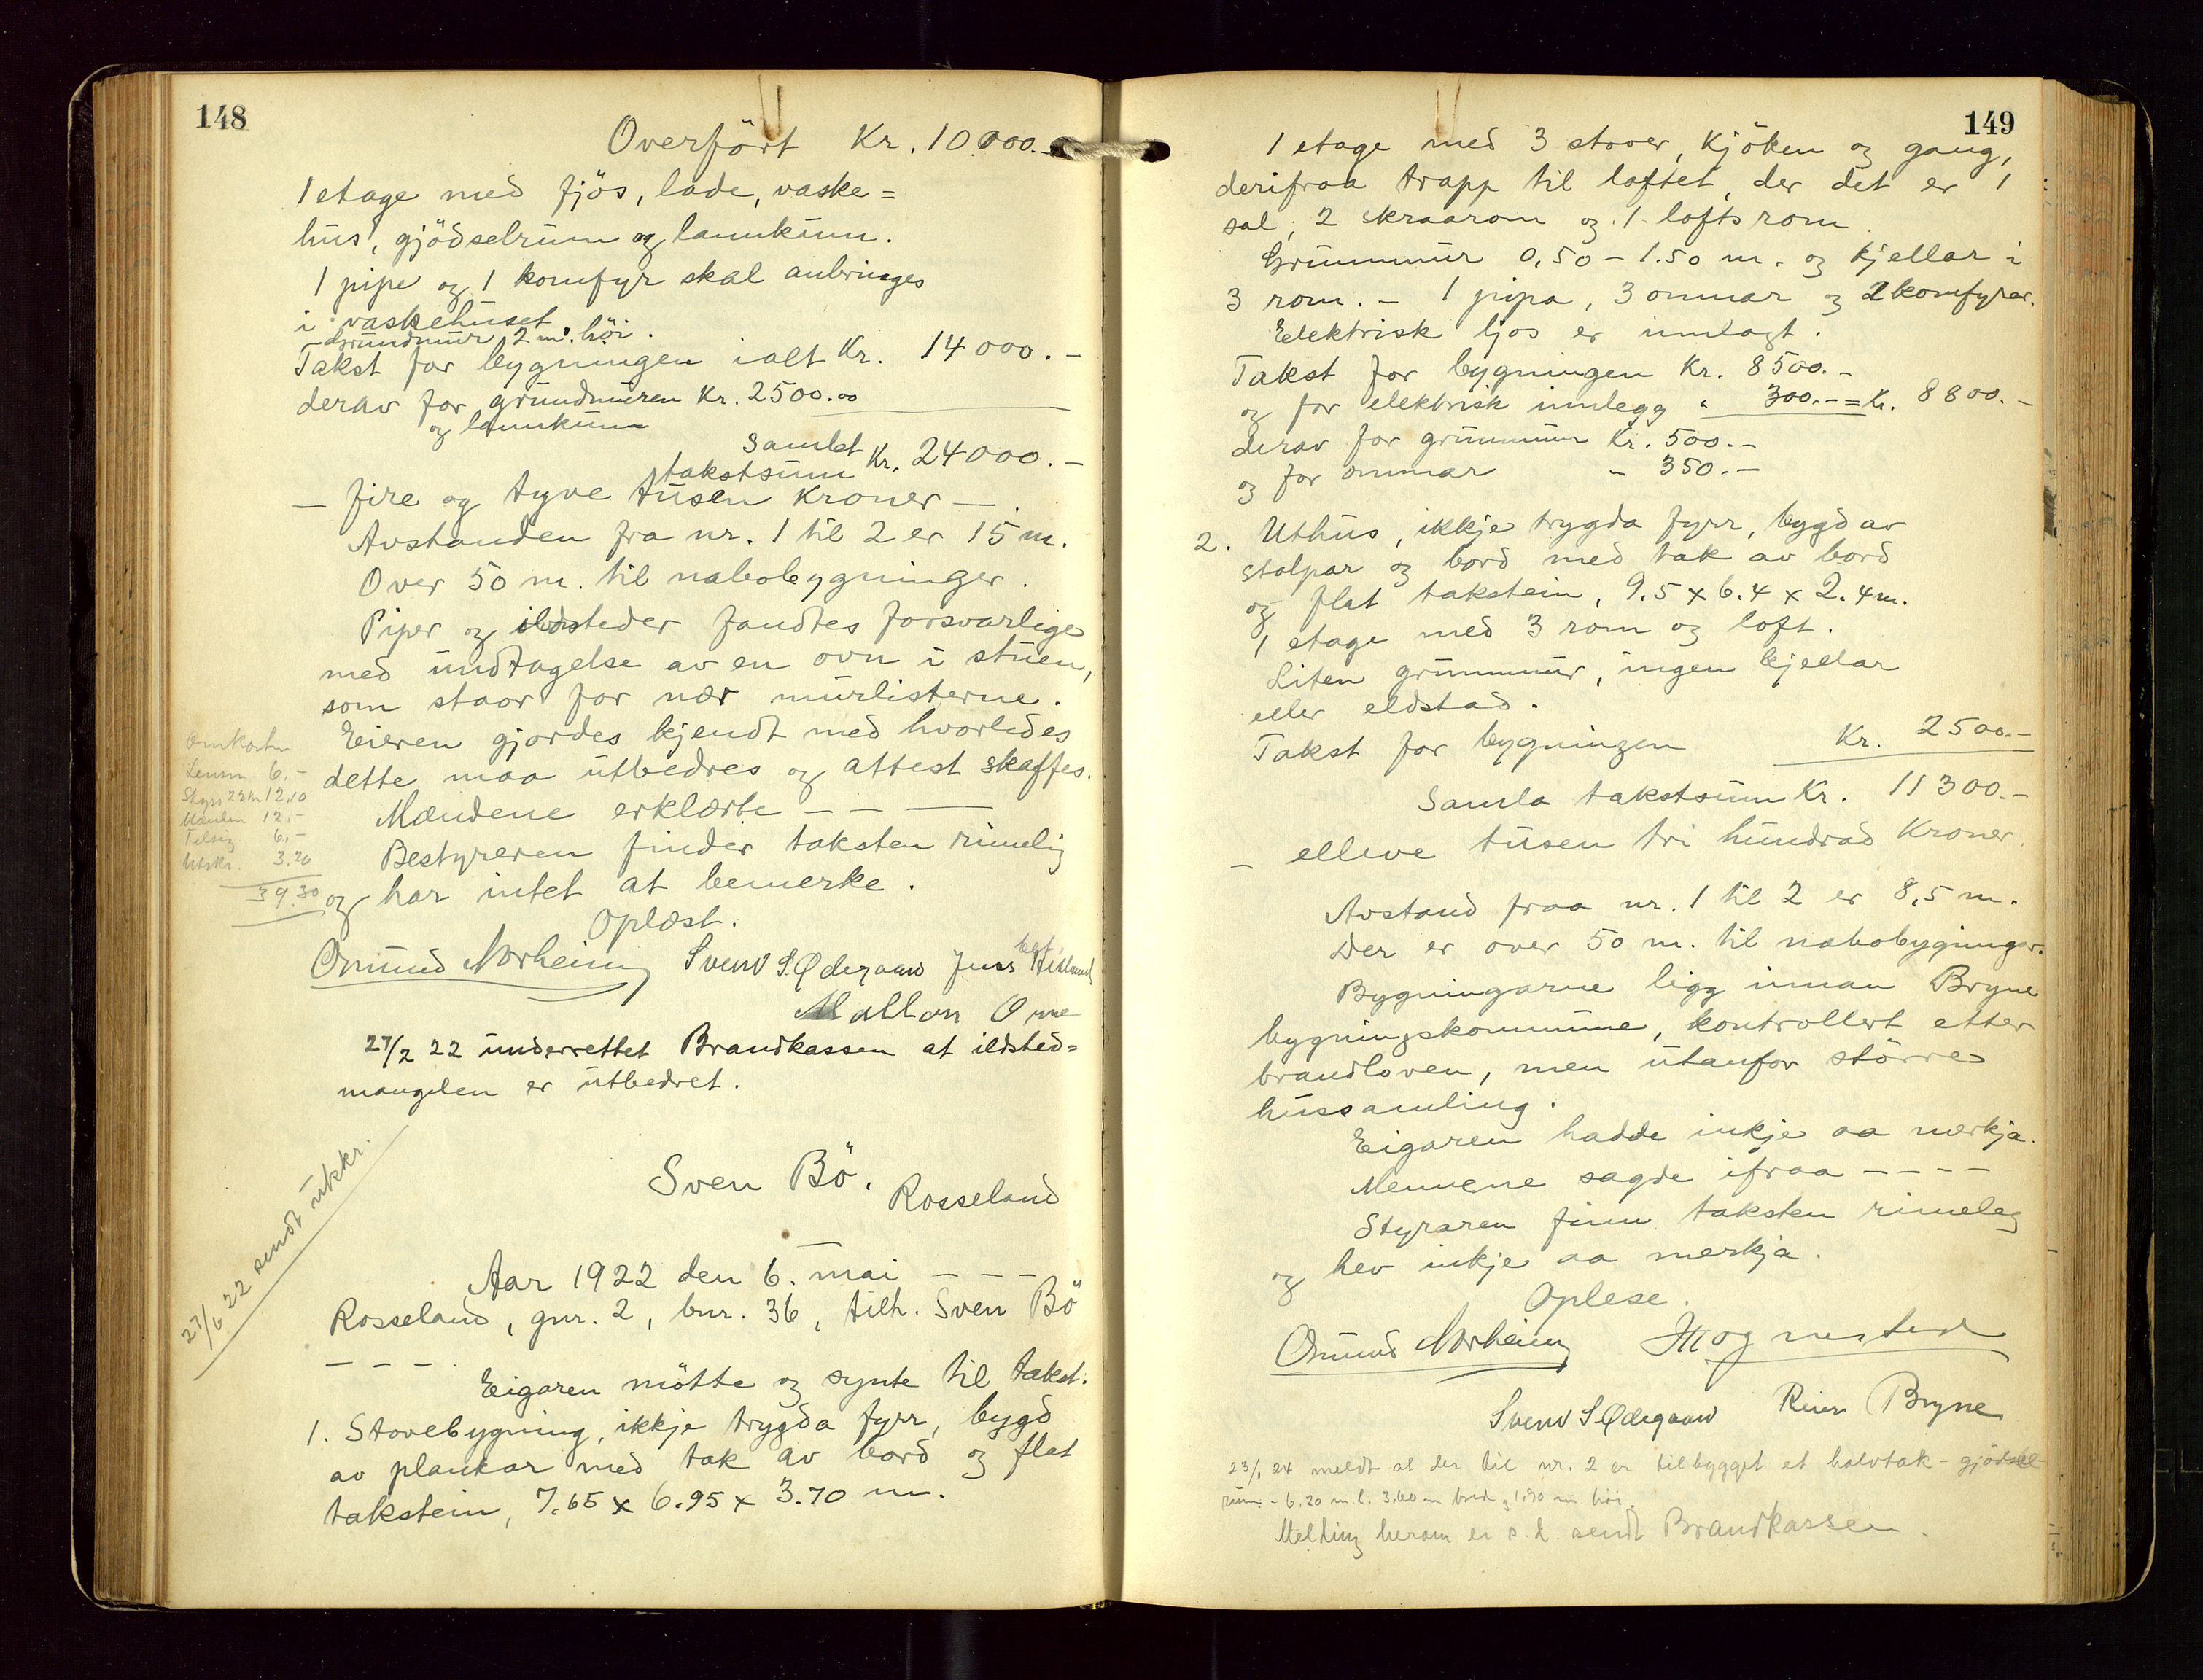 148
Overfört Kr. 10000.-
1 etage med fjös, lade, vaske=
hus, gjödselrum og lannkum.
1 pipe og 1 komfyr skal anbringes
i vaskehuset.
Grundmur 2 m. höi.
Takst for bygningen ialt Kr. 14000.-
derav for grundmuren Kr. 2500.00
og lannkum
Samlet
takstsum Kr. 24000.-
- fire og tyve tusen Kroner -.
Avstanden fra nr. 1 til 2 er 15 m.
Over 50 m. til nabobygninger.
Piper og ildsteder fandtes forsvarlige
med undtagelse av en ovn i stuen,
som staar for nær murlisterne.
Eieren gjordes kjendt med hvorledes
dette maa utbedres og attest skaffes.
Mændene erklærte - - -
Bestyreren finder taksten rimelig
og har intet at bemerke.
Oplæst.
Omkostn
Lensm. 6.-
Skyss 22 km 12.10
Mænden 12.-
Tilsig 6.-
Utskr. 3.20
39.30
Osmund Norheim Svend S. Ödegaard Jens Hetland
Mallon Ome
27/2 22 underrettet Brandkassen at ildsted=
mangelen er utbedret.
27/6 22 sendt utskr.
Sven Bö.
Rosseland
Aar 1922 den 6. mai - - -
Rosseland, gnr. 2, bnr. 36, tilh. Sven Bö
- - - .
Eigaren mötte og synte til takst.
1. Stovebygning, ikkje trygda fyrr, bygd
av plankar med tak av bord og flat
takstein, 7.65 x 6.95 x 3.70 m.
149
1 etage med 3 stover, Kjöken og gang,
derifraa trapp til loftet, der det er 1
sal, 2 skraarom og 1 loftsrom.
Grunnmur 0,50 - 1.50 m. og Kjellar i
3 rom. - 1 pipa, 3 omnar og 2 komfyrar.
Elektrisk ljos er innlagt.
Takst for bygningen Kr. 8500.-
og for elektrisk innlegg " 300.- = Kr. 8800.-
derav for grunnmur Kr. 500.-
og for omnar - 350.-
2. Uthus, ikkje trygda fyrr, bygd av
stolpar og bord med tak av bord
og flat takstein, 9.5 x 6.4 x 2.4 m.
1 etage med 3 rom og loft.
Liten grunnmur, ingen kjellar
eller eldstad.
Takst for bygningen Kr. 2500.-
Samla takstsum Kr. 11300.-
- elleve tusen tri hundrad Kroner.
Avstand fraa nr. 1 til 2 er 8,5 m.
Der er over 50 m. til nabobygningar.
Bygningarne ligg innan Bryne
bygningskommune, kontrollert etter
brandloven, men utanfor större
hussamling.
Eigaren hadde inkje aa merkja.
Mennene sagde ifraa - - - -
Styraren finn taksten rimeleg
og hev inkje aa merkja.
Oplese.
Osmund Norheim
Svend S Ödegaard Reier Bryne
23/1 24 meldt at der til nr. 2 er tilbygget et halvtak - gjödsel-
rum - 6.20 m l. 3.60 m bred og 1.90 m höi.
Melding herom er s. d. sendt Brandkassen.